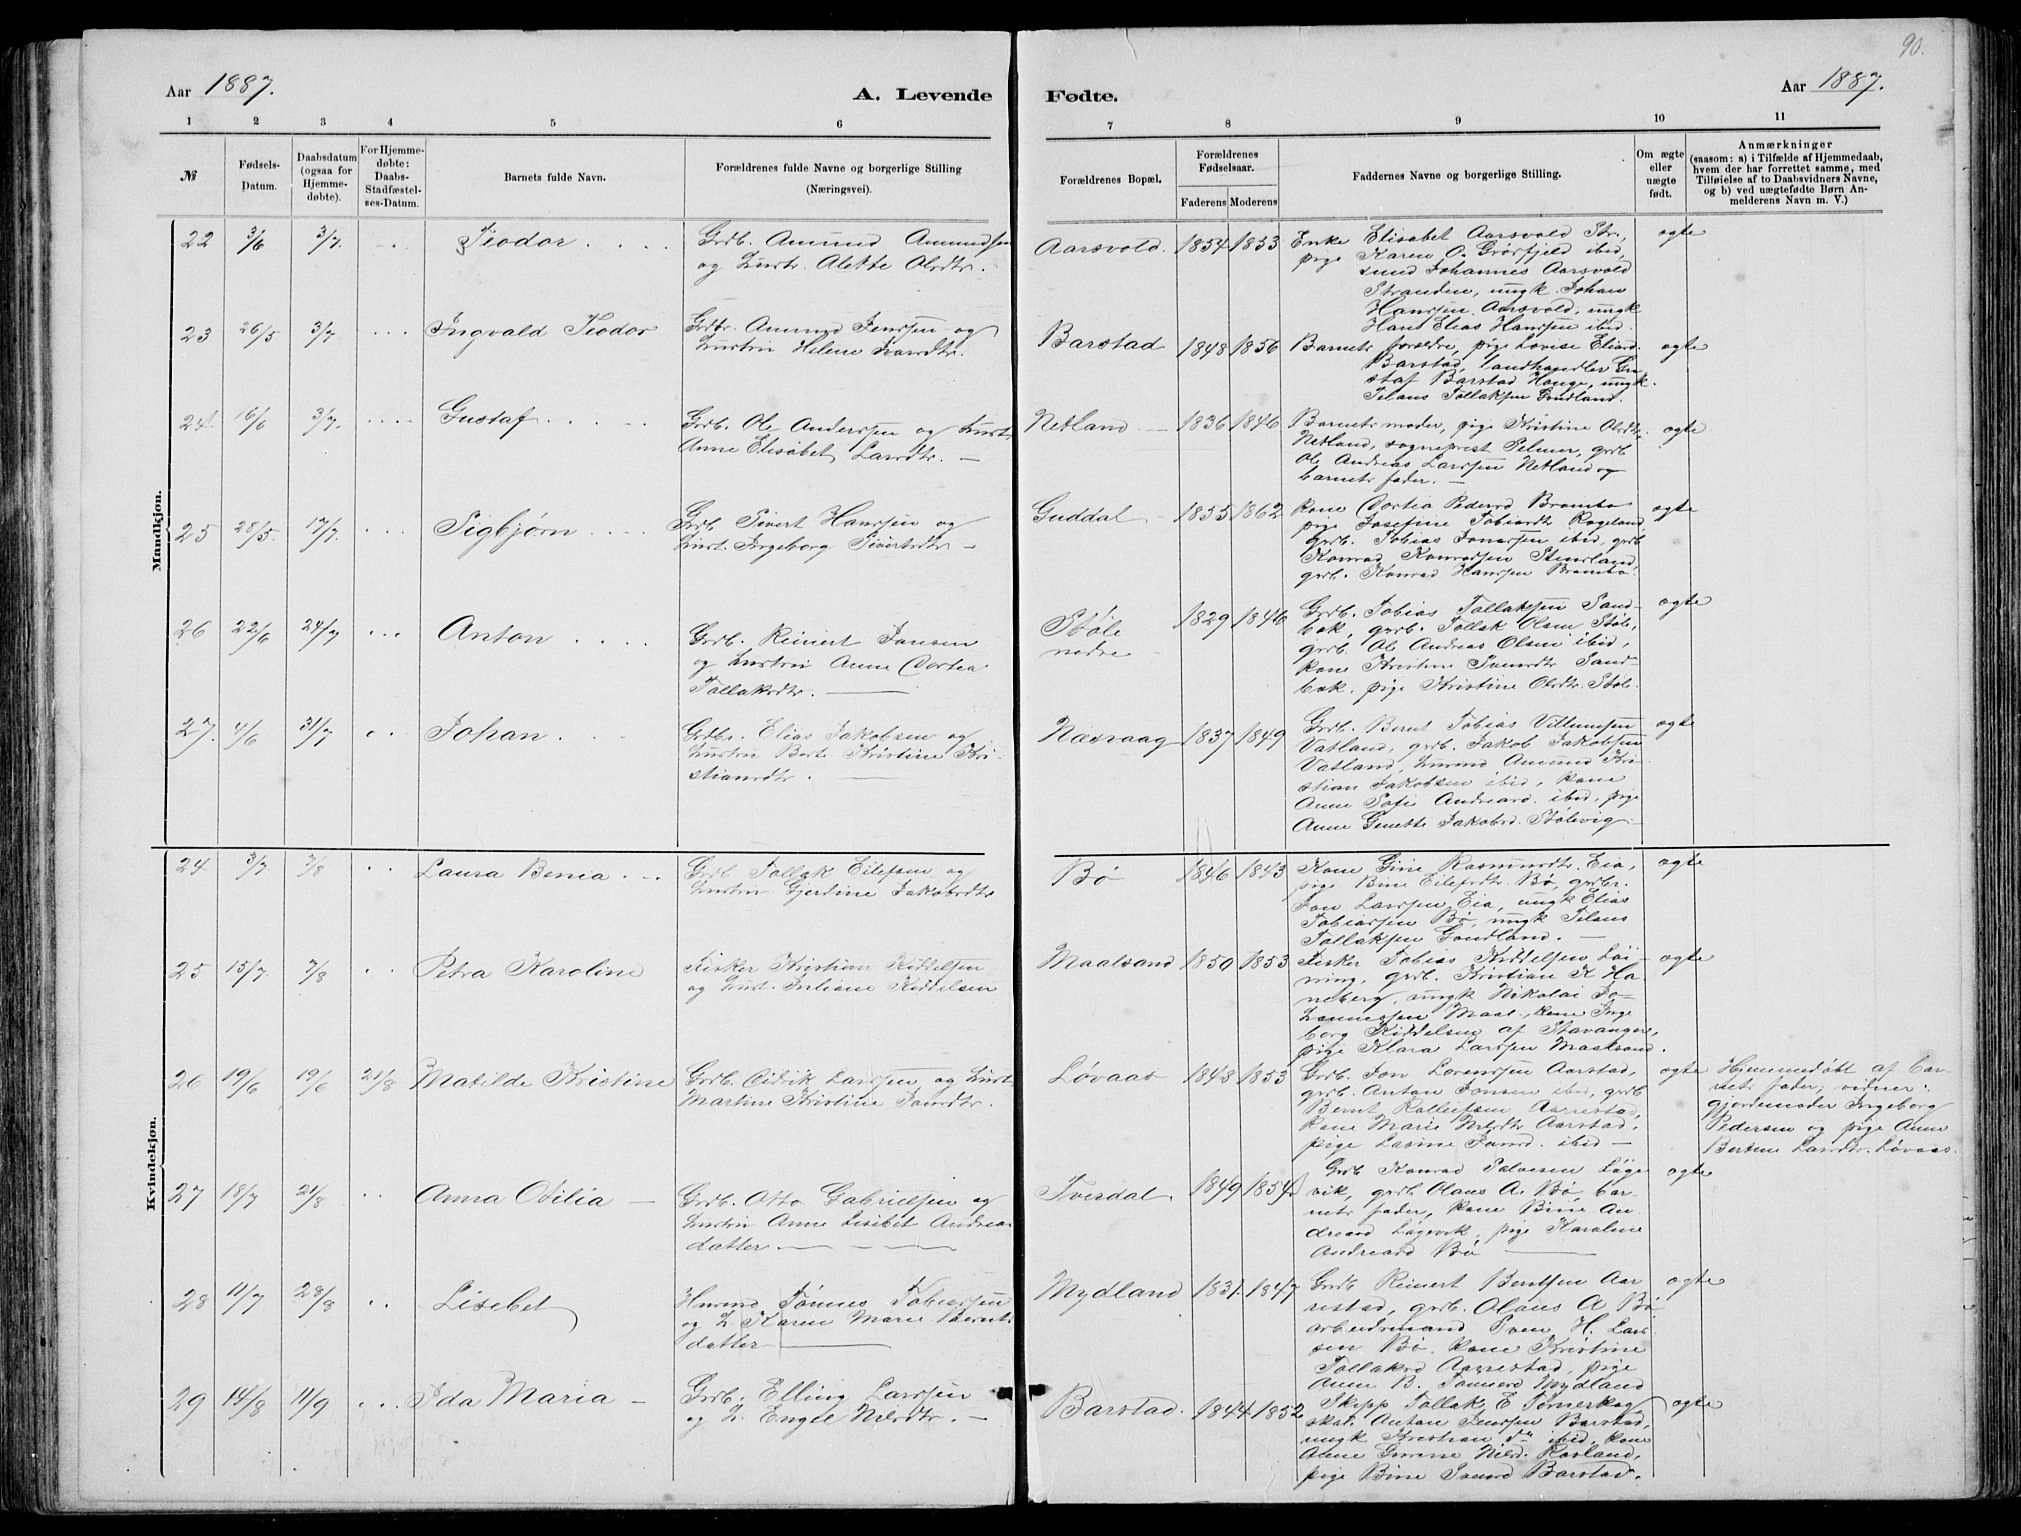 90.
Aar 1887.
A. Levende Fødte.
Aar 1887.
1 2 3 4 5 6 7 8 9 10 11
№
Fødsels-
Datum.
Daabsdatum
(ogsaa for
Hjemme-
døbte).
For Hjemme-
døbte:
Daabs-
Stadfæstel-
ses-Datum.
Barnets fulde Navn.
Forældrenes fulde Navne og borgerlige Stilling
(Næringsvei).
Forældrenes Bopæl.
Forældrenes
Fødselsaar.
Faderens Moderens
Faddernes Navne og borgerlige Stilling.
Om ægte
eller
uægte
født.
Anmærkninger
(saasom: a) i Tilfælde af Hjemmedaab,
hvem der har forrettet samme, med
Tilføielse af to Daabsvidners Navne,
og b) ved uægtefødte Børn An-
melderens Navn m. V.)
Mandkjøn.
22 3/6 3/7. Teodor
Grdb. Amund Amundsen
og hustr. Alette Olsdtr.
Aarsvold. 1854 1853
Enke Elisabet Aarsvold Str.,
pige Karen O. Grøsfjeld ibid,
smed Johannes Aarsvold
Stranden, ungk. Johan
Hanssen Aarsvold, ungk
Hans Elias Hanssen ibid.
ægte
23 26/5 3/7 Ingvald Teodor
Grdbr. Amund Jenssen og
hustru Helene Ivarsdtr.
Barstad 1848 1856
Barnets forældre, pige Lovise Eliasd.
Barstad, landhandler Gu-
staf Barstad Hauge, ungk.
Tilaus Tollaksen Gundland.
ægte
24 16/6 3/7. Gustaf
Grdb. Ole Andersen og hustr
Anne Elisabet Larsdtr.
Netland 1836 1846
Barnets moder, pige Kristine Olsdtr.
Netland, sogneprest Selmer, grdb
Ole Andreas Larssen Netland og
barnets fader.
ægte
25 28/5. 17/7. Sigbjørn
Grdb Sivert Hanssen og
hust. Ingeborg Sivertsdtr
Guddal 1855 1862
kone Cortia Pedersd Brambo
pige Josefine Tobiasdtr Rageland
grdb. Tobias Jonassen ibid, grdb
Konrad Konradsen Steinsland,
grdb. Konrad Hanssen Brambo.
ægte
26 22/6 24/7 Anton
Grdb. Reinert Jansen
og hustru Anne Cortea
Tollaksdtr.
Støle
nedre
1829 1846
Grdb. Tobias Tollaksen Sand-
bæk, grdb. Tollak Olsen Støle,
grdb. Ole Andreas Olsen ibid,
kone Kristine Svensdtr Sand-
bæk, pige Kristine Olsdtr. Støl.
ægte
27. 4/6 31/7 Johan
Grdbr. Elias Jakobsen og
hustru Berte Kristine Kri-
stiansdtr.
Næsvaag 1837 1849
Grdb. Bernt Tobias Villumsen
Vatland, grdb. Jakob Jakobsen
Vatland, husmd Amund Kri-
stian Jakobsen ibid, kone
Anne Sofie Andreasd. ibid, pige
Anne Genette Jakobsd. Stølevig
ægte
Kvindekjøn.
24 3/7 7/8 Laura Benia
Grdb Tollak Eilefsen og
hustru Gjertine Jakobsdtr
Bø 1846 1843
Kone Gine Rasmusdtr. Eia,
pige Bine Eilefsdtr. Bø, grdbr.
Jon Larssen Eia, ungk Elias
Tobiassen Bø, ungk Tilaus
Tollaksen Gundland.
ægte
25 15/7 7/8 Petra Karoline
Fisker Kristian Kiddelsen
og hust. Juliane Kiddelsen
Maalsand 1850 1853
Fisker Tobias Kiddelsen Løi-
ning, grdb. Kristian K Ha-
neberg, ungk Nikolai Jo-
hannessen Maal., kone Inge
borg Kiddelsen af Stavanger,
pige Klara Larssen Maalsand.
ægte
26 19/6 19/6 21/8 Matilde Kristine
Grdb. Didrik Larssen og hust
Martine Kristine Jansdtr.
Løvaas 1848 1853
Grdb. Jon Lorenssen Aarstad,
grdb. Anton Jonsen ibid, grdb
Bernt Rolleifsen Aarrestad,
kone Marie Nilsdtr Aarstad,
pige Lasine Jansd. ibid
ægte
Hjemmedøbt af bar-
nets fader; vidner:
gjordemoder Ingeborg
Pedersen og pige Anne
Bertine Larsdtr. Løvaas.
27 18/7 21/8 Anna Otilia
Grdb. Otto Gabrielsen og
hustru Anne Lisebet Andreas
datter
Tverdal. 1849 1854
Grdb Konrad Salvesen Løge
vik, grdb Olaus A. Bø, bar-
nets fader, kone Bine An
dreasd Løgevik, pige Karoline
Andreasd Bø
ægte
28 11/7 28/8 Lisebet
Husmd Tønnes Tobiassen
og h. Karen Marie Bernts
datter
Mydland 1831 1847
Grdb Reinert Berntsen Aar
restad, grdb. Olaus A Bø
arbeidsmand Sven H. Lar
sen Bø, kone Kristine
Tollaksd Aarrestad, pige
Anne B. Tønnesd Mydland
ægte
29 14/8 11/9 Ida Maria
Grdb. Elling Larssen
og h. Engel Nilsdtr.
Barstad. 1844 1852
Skipp Tollak E Tønneskog
skat. Anton Jenssen Barstad,
ungk Kristian do ibid, kone
Anne Gurine Nilsd. Rosland,
pige Bine Svensd Barstad.
ægte